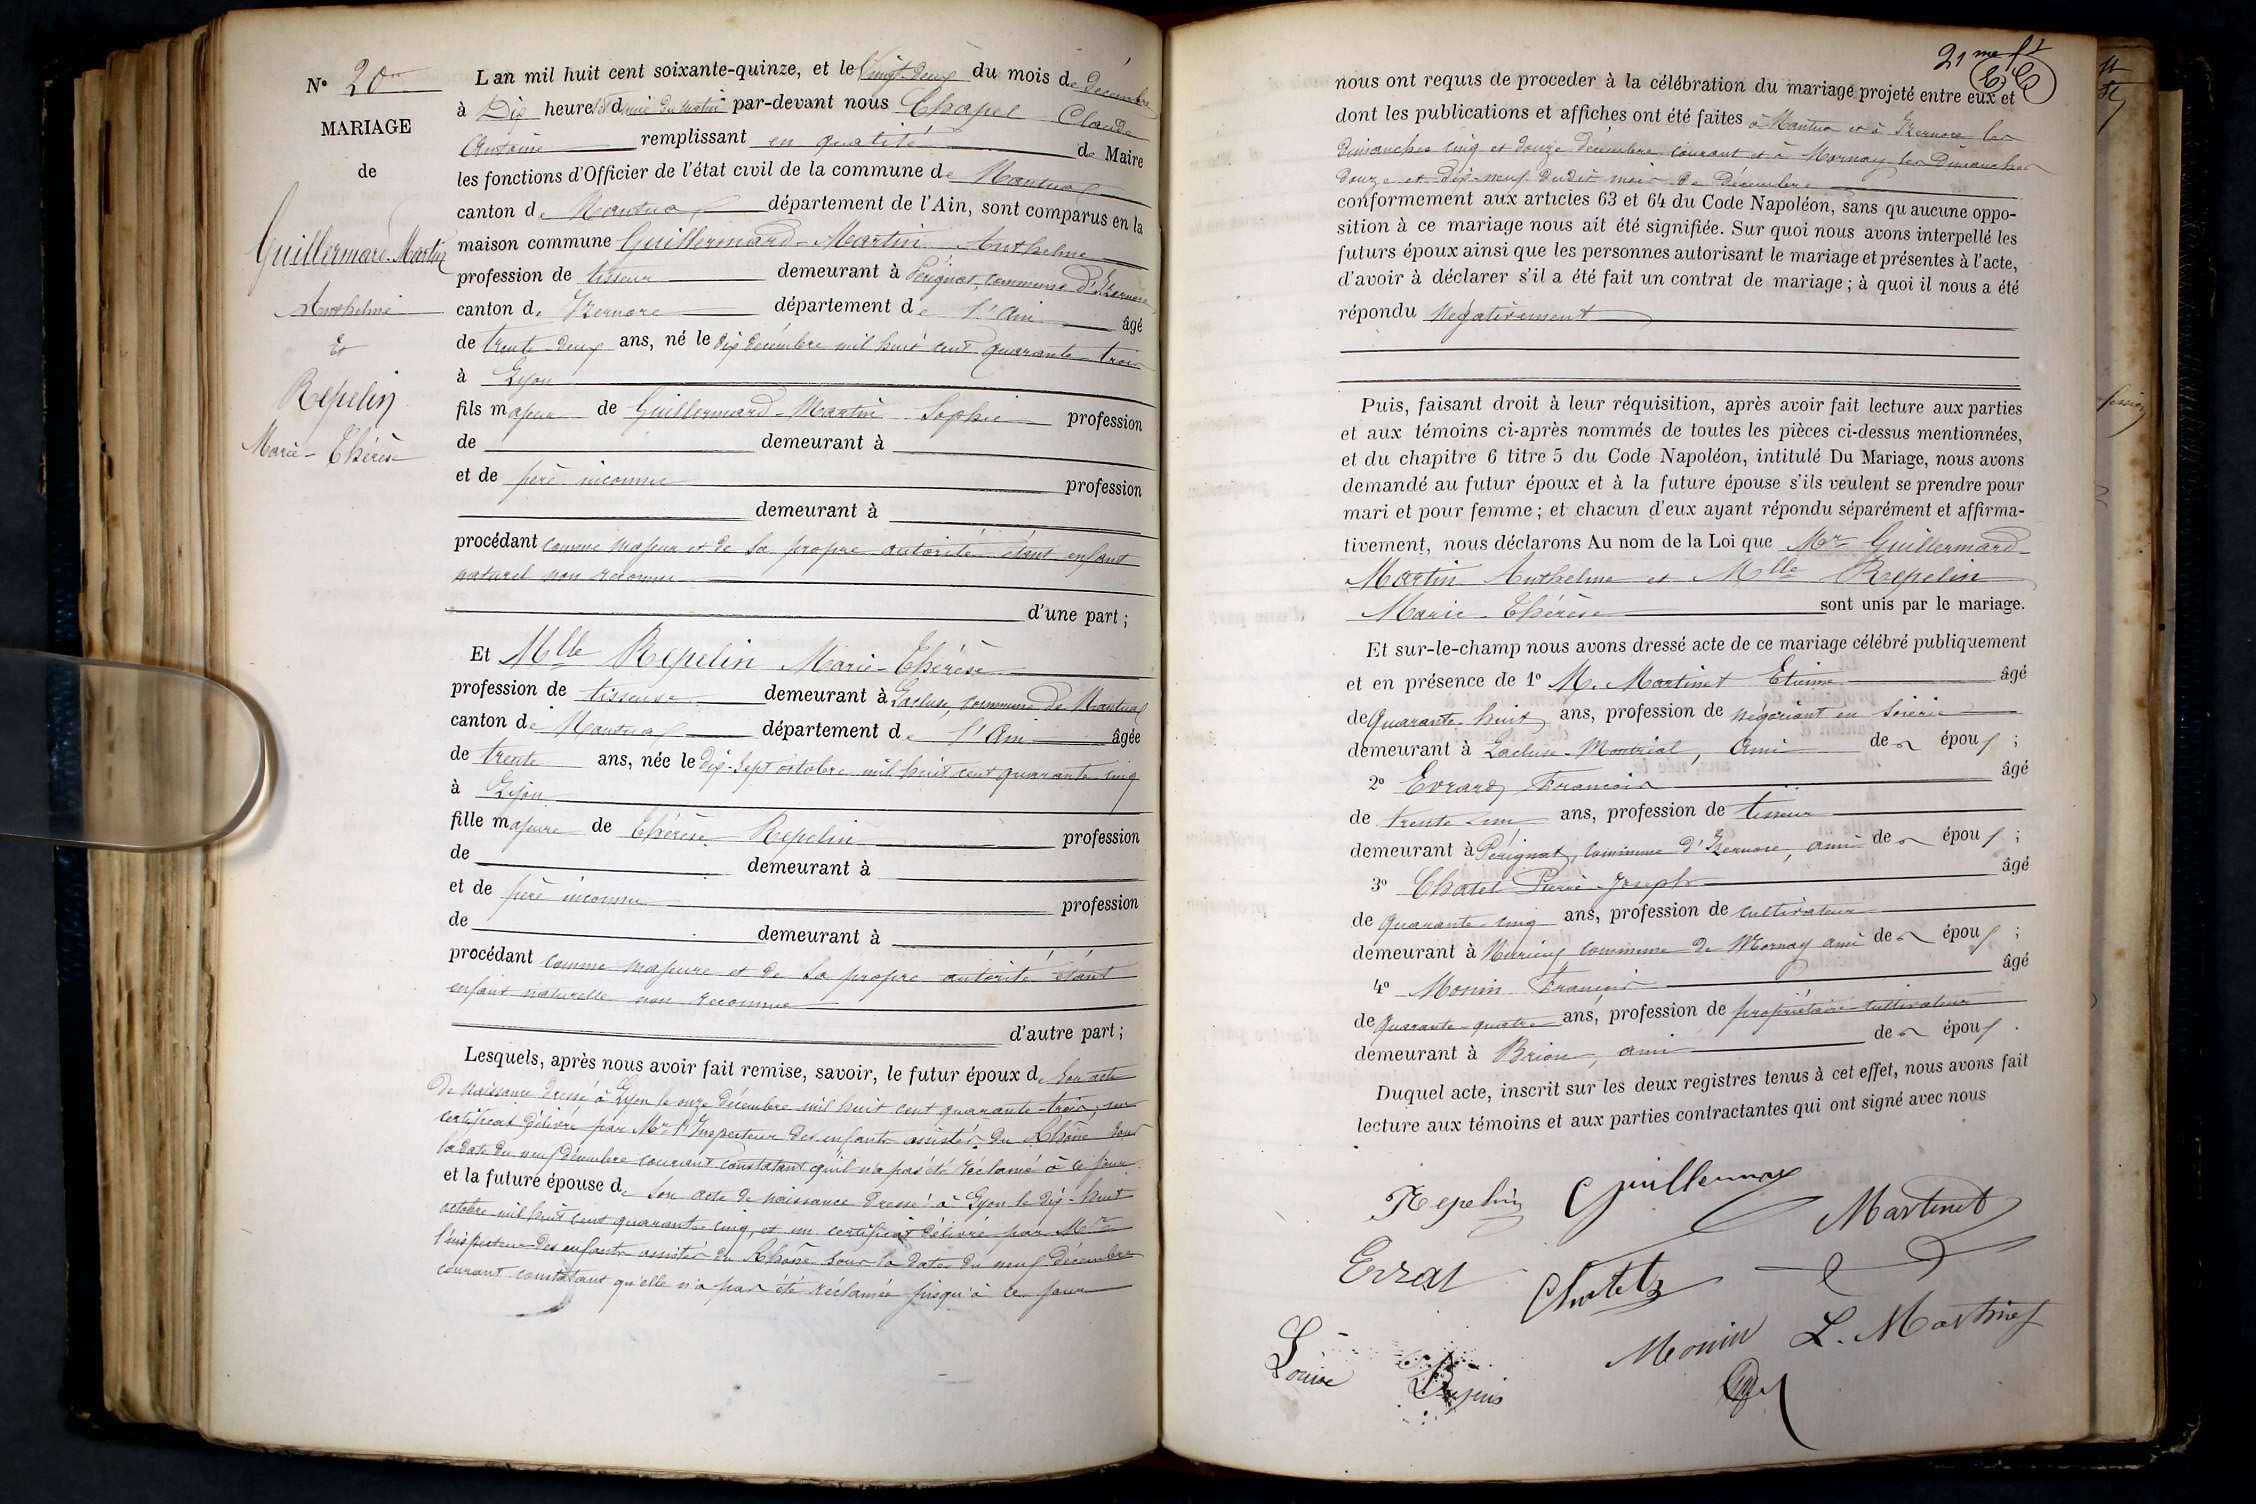 N° 20
MARIAGE
de
Guillermard-Martin
Anthelme
Et
Repelin
Marie-Thérèse
L'an mil huit cent soixante-quinze, et le vingt-deux du mois de décembre
à Dix heures & demie du matin par-devant nous Chapel Claude
Antoine remplissant en qualité de Maire
les fonctions d'Officier de l'état civil de la commune de Nantua
canton de Nantua département de l'Ain, sont comparus en la
maison commune Guillermard-Martin Anthelme
profession de tisseur demeurant à Pérignat, commune d'Izernore
canton d'Izernore département de l'Ain âgé
de trente-deux ans, né le dix décembre mil huit cent quarante-trois
à Lyon
fils majeur de Guillermard-Martin Sophie profession
de demeurant à
et de père inconnu profession
demeurant à
procédant comme majeur et de sa propre autorité étant enfant
naturel non reconnu
d'une part ;
Et Mlle Repelin Marie-Thérèse
profession de tisseuse demeurant à Lacluse, commune de Nantua
canton de Nantua département de l'Ain âgée
de trente ans, née le dix-sept octobre mil huit cent quarante cinq
à Lyon
fille majeure de Thérèse Repelin profession
de demeurant à
et de père inconnu profession
de demeurant à
procédant comme majeure et de sa propre autorité étant
enfant naturelle non reconnue
d'autre part ;
Lesquels, après nous avoir fait remise, savoir, le futur époux de son acte
de naissance dressé à Lyon le onze décembre mil huit cent quarante-trois, un
certificat délivré par Mr l'Inspecteur des enfants assistés du Rhône sous
la date du neuf décembre courant constatant qu'il n'a pas été réclamé à ce jour
et la future épouse de son acte de naissance dressé à Lyon le dix-huit
octobre mil huit cent quarante cinq, et un certificat délivré par Mr
l'inspecteur des enfants assistés du Rhône sous la date du neuf décembre
courant constatant qu'elle n'a pas été réclamée jusqu'à ce jour
21me ft
nous ont requis de procéder à la célébration du mariage projeté entre eux et
dont les publications et affiches ont été faites à Nantua et à Izernore les
dimanches cinq et douze décembre courant et à Mornay les Dimanches
douze et dix-neuf dudit mois de Décembre
conformément aux articles 63 et 64 du Code Napoléon, sans qu'aucune oppo-
sition à ce mariage nous ait été signifiée. Sur quoi nous avons interpellé les
futurs époux ainsi que les personnes autorisant le mariage et présentes à l'acte,
d'avoir à déclarer s'il a été fait un contrat de mariage ; à quoi il nous a été
répondu négativement
Puis, faisant droit à leur réquisition, après avoir fait lecture aux parties
et aux témoins ci-après nommés de toutes les pièces ci-dessus mentionnées,
et du chapitre 6 titre 5 du Code Napoléon, intitulé Du Mariage, nous avons
demandé au futur époux et à la future épouse s'ils veulent se prendre pour
mari et pour femme ; et chacun d'eux ayant répondu séparément et affirma-
tivement, nous déclarons Au nom de la Loi que Mr Guillermard-
Martin Anthelme et Mlle Repelin
Marie-Thérèse sont unis par le mariage.
Et sur-le-champ nous avons dressé acte de ce mariage célébré publiquement
et en présence de 1° M. Martinet Etienne âgé
de Quarante-huit ans, profession de négociant en soierie
demeurant à Lacluse-Montréal, ami de époux ;
2° Evrard François âgé
de trente ans, profession de tisseur
demeurant à Pérignat, commune d'Izernore, ami de époux ;
3° Chatel Pierre-Joseph âgé
de quarante-cinq ans, profession de cultivateur
demeurant à commune de Mornay ami de époux ;
4° Monin François âgé
de quarante-quatre ans, profession de propriétaire-cultivateur
demeurant à Brion, ami de époux.
Duquel acte, inscrit sur les deux registres tenus à cet effet, nous avons fait
lecture aux témoins et aux parties contractantes qui ont signé avec nous
Repelin Guillermar
Martinet
Evrat
Chatel
Monin L. Martinet
Louise